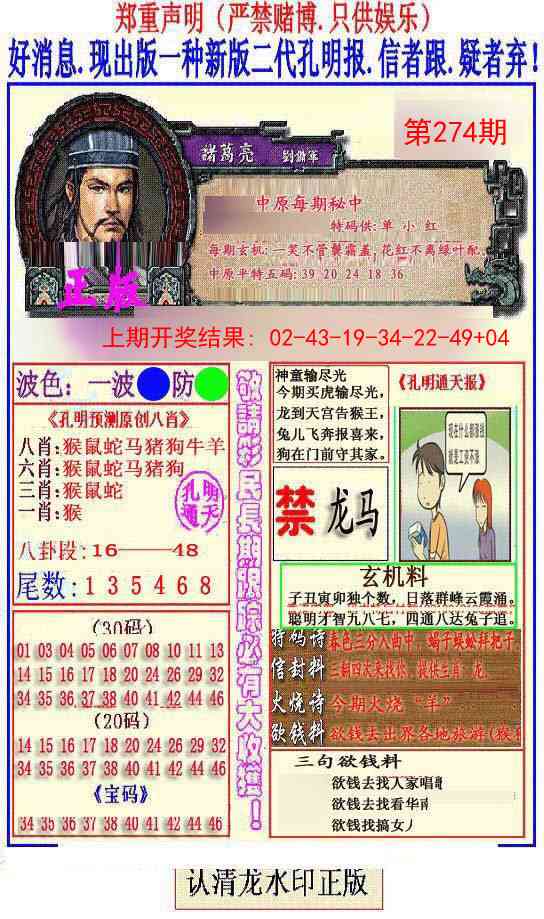 郑重声明（严禁赌博.只供娱乐）
好消息.现出版一种新版二代孔明报.信者跟.疑者弃!
第274期
諸萬亮
中原每期秘中
特码供:单 小 红
每期玄机:一笑不管襲霜盖,花红不离绿叶配.
中原平特五码:39 20 24 18 36
正版
上期开奖结果：02-43-19-34-22-49+04
波色：一波 防
《孔明预测原创八肖》
八肖:猴鼠蛇马猪狗牛羊
六肖:猴鼠蛇马猪狗
三肖:猴鼠蛇
一肖:猴
孔明
通天
八卦段:16——48
尾数:1 3 5 4 6 8
(30码)
01 03 04 05 06 07 08 10 11 13
14 15 16 17 18 20 24 26 29 32
34 35 36 37 38 40 41 42 44 46
(20码)
14 15 16 17 18 20 24 26 29 32
34 35 36 37 38 40 41 42 44 46
《宝码》
34 35 36 37 38 40 41 42 44 46
敬請彩民長期跟踪必有大收獲！
神童输尽光
今期买虎输尽光,
龙到天宫告猴王,
兔儿飞奔报喜来,
狗在门前守其家.
《孔明通天报》
禁 龙马
现在什么都涨钱
就是工资不涨
玄机料
子丑寅卯独个数，日落群峰云霞涌。
聪明牙智九八七，四通八达兔子道。
特码诗 春色三分入曲中，蝎子蜈蚣拜把子
信封料
火烧诗 今期火烧“羊”
欲钱料 欲钱去出界各地旅游(猴
三句欲钱料
欲钱去找人家唱歌
欲钱去找看华南
欲钱找搞女人
认清龙水印正版